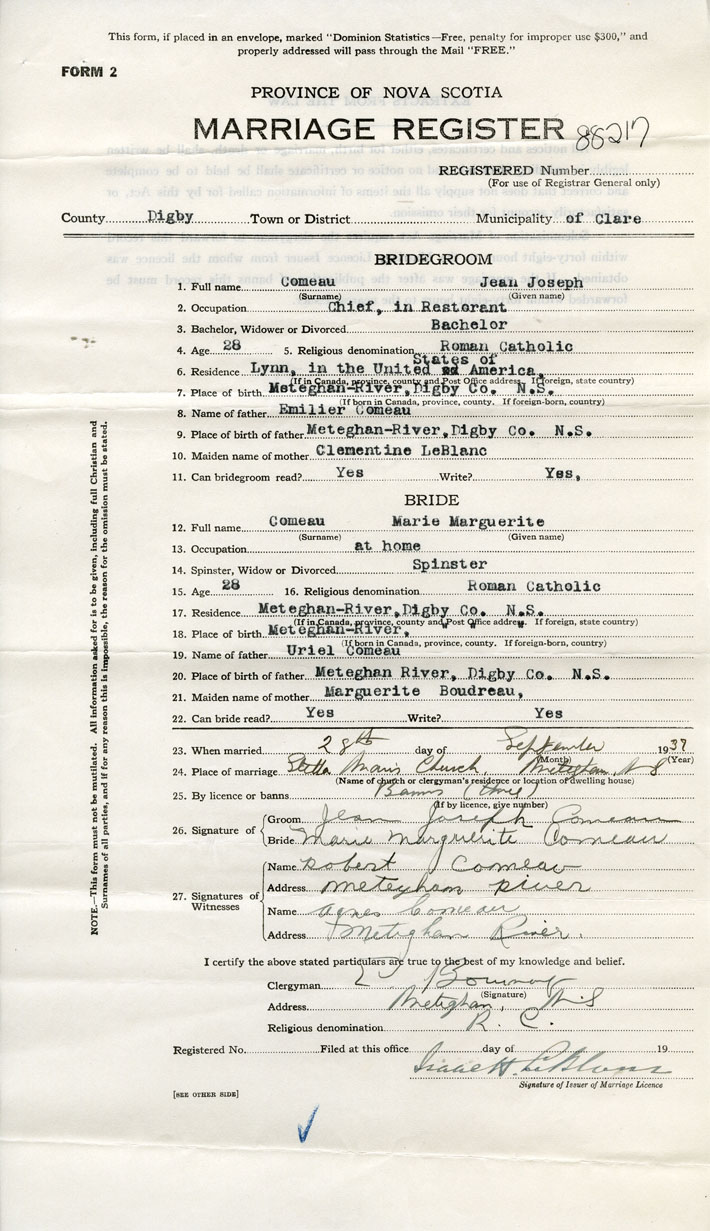 This form, if placed in an envelope, marked "Dominion Statistics—Free, penalty for improper use $300," and
properly addressed will pass through the Mail "FREE."
FORM 2
PROVINCE OF NOVA SCOTIA
MARRIAGE REGISTER 88217
REGISTERED Number
(For use of Registrar General only)
County Digby Town or District Municipality of Clare
BRIDEGROOM
1. Full name Comeau Jean Joseph
(Surname) (Given name)
2. Occupation Chief, in Restorant
3. Bachelor, Widower or Divorced Bachelor
4. Age 28 5. Religious denomination Roman Catholic
States of
6. Residence Lynn, in the United America,
(If in Canada, province, county and Post Office address. If foreign, state country)
7. Place of birth Meteghan-River, Digby Co. N.S.
(If born in Canada, province, county. If foreign-born, country)
8. Name of father Emilier Comeau
9. Place of birth of father Meteghan-River, Digby Co. N.S.
10. Maiden name of mother Clementine LeBlanc
11. Can bridegroom read? Yes Write? Yes,
BRIDE
12. Full name Comeau Marie Marguerite
(Surname) (Given name)
13. Occupation at home
14. Spinster, Widow or Divorced Spinster
15. Age 28 16. Religious denomination Roman Catholic
17. Residence Meteghan-River, Digby Co. N.S.
(If in Canada, province, county and Post Office address. If foreign, state country)
18. Place of birth Meteghan-River,
(If born in Canada, province, county. If foreign-born, country)
19. Name of father Uriel Comeau
20. Place of birth of father Meteghan River, Digby Co. N.S.
21. Maiden name of mother Marguerite Boudreau,
22. Can bride read? Yes Write? Yes
23. When married 28th day of September 1937
(Month) (Year)
24. Place of marriage Stella Maris Church, Meteghan, N S
(Name of church or clergyman's residence or location of dwelling house)
25. By licence or banns Banns
(If by licence, give number)
26. Signature of
Groom Jean Joseph Comeau
Bride Marie Marguerite Comeau
27. Signatures of Witnesses
Name Robert J Comeau
Address Meteghan River
Name Agnes Comeau
Address Meteghan River.
I certify the above stated particulars are true to the best of my knowledge and belief.
Clergyman
(Signature)
Address Meteghan, N S
Religious denomination R. C.
Registered No. Filed at this office day of 19
Isaac H. LeBlanc
Signature of Issuer of Marriage Licence
[SEE OTHER SIDE]
NOTE.—This form must not be mutilated. All information asked for is to be given, including full Christian and
Surnames of all parties, and if for any reason this is impossible, the reason for the omission must be stated.